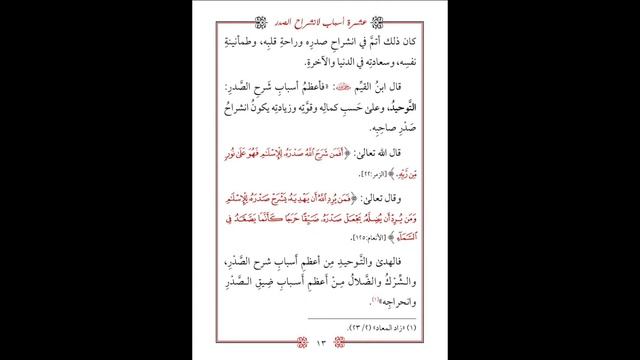 عشرة أسباب لانشراح الصدر
كان ذلك أتمَّ في انشراحِ صدرِه وراحةِ قلبِه، وطمأنينةِ
نفسِه، وسعادتِه في الدنيا والآخرةِ.
قال ابنُ القيِّم رحمه الله: «فأعظمُ أسبابِ شَرحِ الصَّدرِ:
التَّوحيدُ، وعلىٰ حَسبِ كمالِه وقوَّتِه وزيادتِه يكونُ انشراحُ
صَدْرِ صاحبِه.
قال الله تعالىٰ: ﴿أَفَمَن شَرَحَ ٱللَّهُ صَدْرَهُۥ لِلْإِسْلَٰمِ فَهُوَ عَلَىٰ نُورٍ
مِّن رَّبِّهِۦ﴾ [الزمر:٢٢].
وقال تعالىٰ: ﴿فَمَن يُرِدِ ٱللَّهُ أَن يَهْدِيَهُۥ يَشْرَحْ صَدْرَهُۥ لِلْإِسْلَٰمِ
وَمَن يُرِدْ أَن يُضِلَّهُۥ يَجْعَلْ صَدْرَهُۥ ضَيِّقًا حَرَجًا كَأَنَّمَا يَصَّعَّدُ فِي
ٱلسَّمَآءِ﴾ [الأنعام:١٢٥].
فالهدىٰ والتَّوحيدُ مِن أعظمِ أَسبابِ شرحِ الصَّدْرِ،
والشِّرْكُ والضَّلالُ مِنْ أَعظمِ أَسبابِ ضِيقِ الصَّدْرِ
وانحراجِه»(١).
(١) «زاد المعاد» (٢/ ٢٣).
١٣